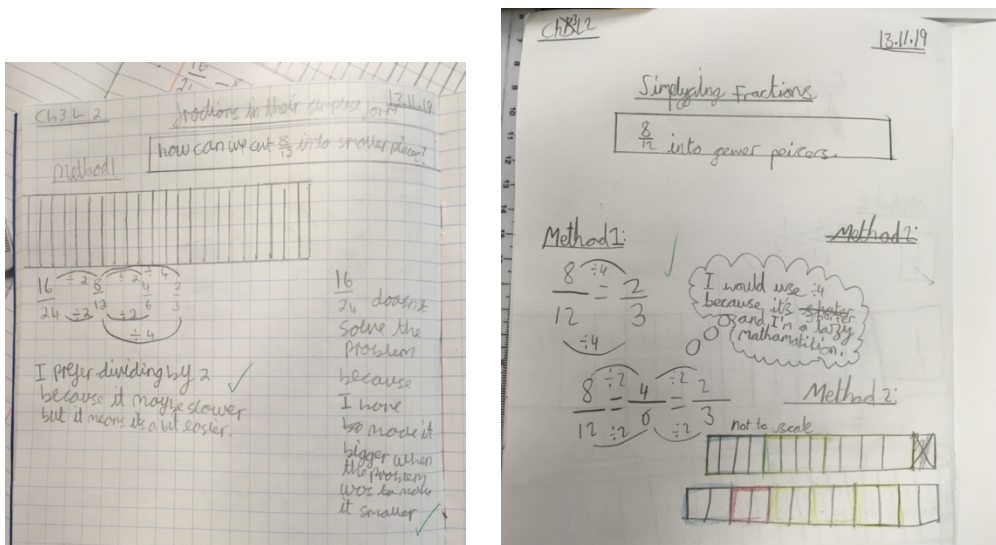 16
Ch3 L 2
13.11.19
fractions in their simplest form
how can we cut 8/12 into smaller pieces?
Method 1
16/24 ÷2 8/12 ÷2 4/6 2/3 ÷4
÷2 ÷2
÷4
I prefer dividing by 2
because it maybe slower
but it means its a bit easier.
16/24 doesn't
solve the
problem
because
I have
made it
bigger when
the problem
was to make
it smaller
Ch3 L2
13.11.19
Simplyaing Fractions
8/12 into fewer peicers.
Method 1:
Method 2:
8/12 = 2/3
÷4
÷4
I would use ÷4
because it's shoter
shorter
and I'm a lazy
mathamatition.
8/12 = 4/6 = 2/3
÷2 ÷2
÷2 ÷2
Method 2:
not to scale